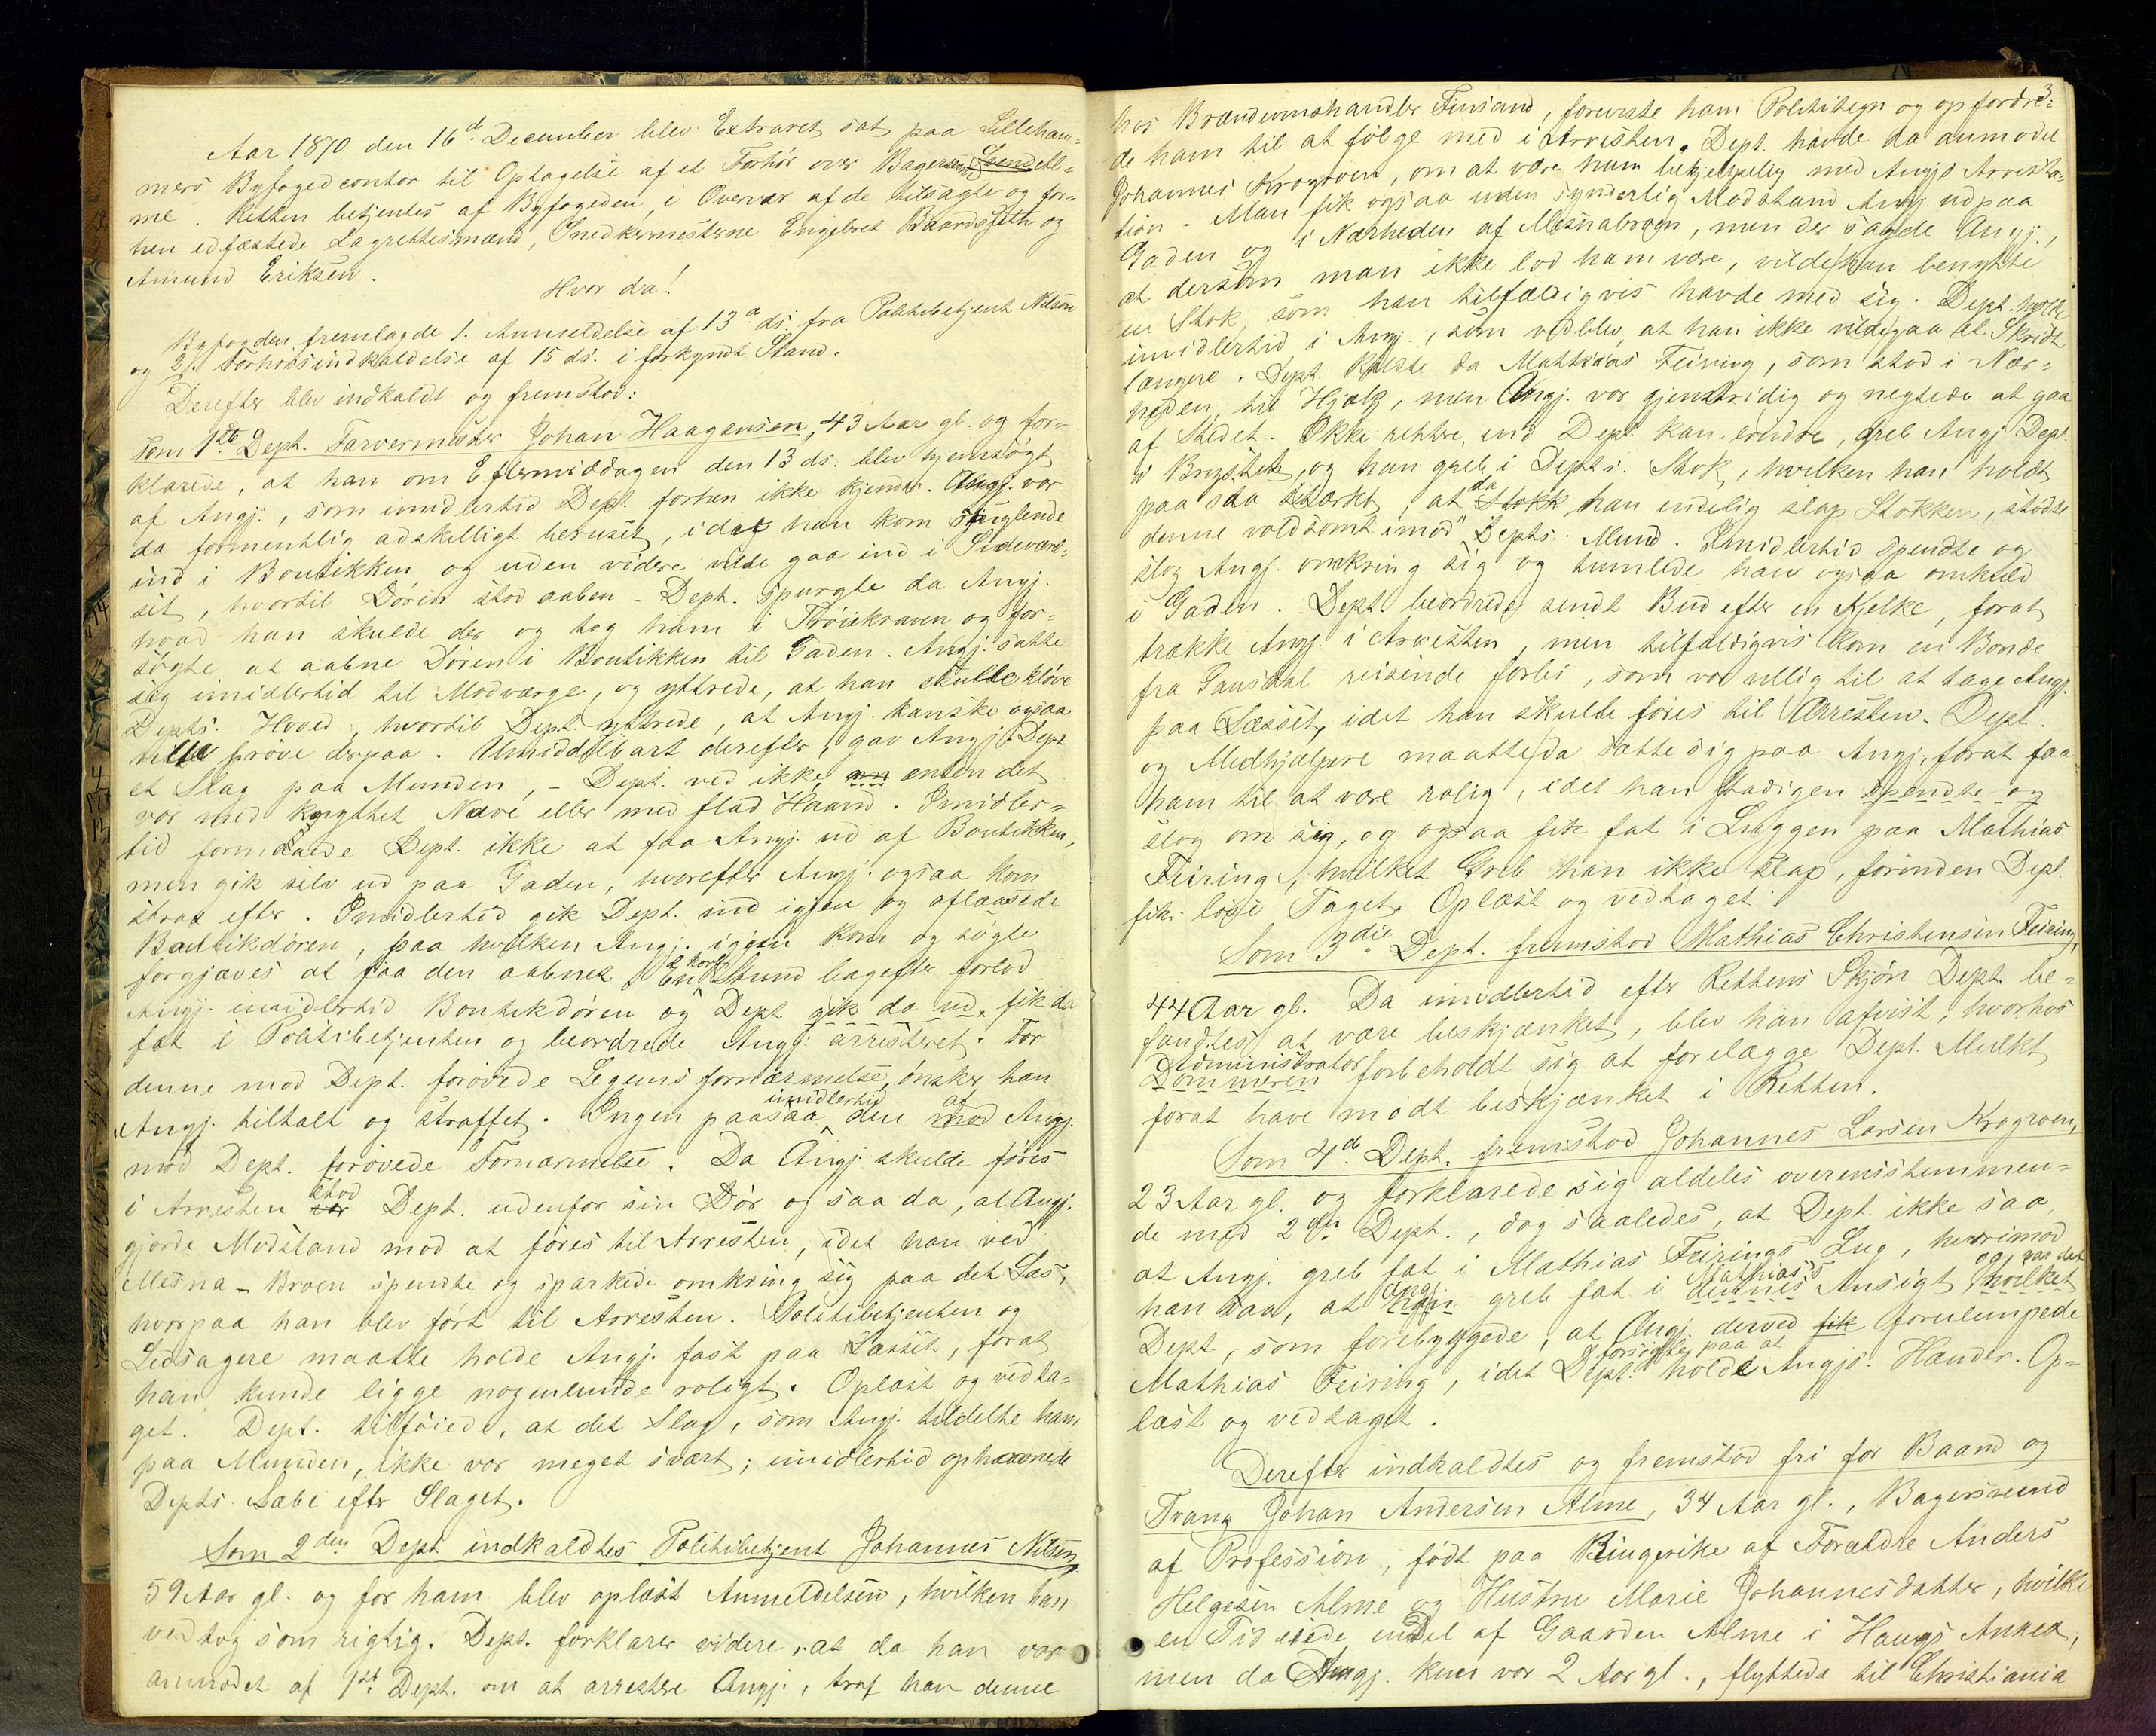 Aar 1870 den 16de December blev Extraret sat paa Lilleham-
mers Byfogedcontor til Optagelse af et Forhør over Bagersvend
me. Retten betjentes af Byfogeden, i Overvær af de tilsagte og for-
hen edfæstede Lagrettesmænd, Snedkermesterne Engebret Baardseth og
Amund Eriksen.
Hvor da!
Byfogden fremlagde 1. Anmeldelse af 13de ds. fra Politibetjent Nilsen
og 2, Forhørsindkaldelse af 15 ds. i forkyndt Stand.
Derefter blev indkaldt og fremstod:
Som 1ste Dept. Farvermester Johan Haagensen, 43 Aar gl. og for-
klarede, at han om Eftermiddagen den 13 ds. blev hjemsøgt
af Angj., som imidlertid Dept. forhen ikke kjender. Angj. var
da formentlig adskilligt beruset, idet han kom ravglende
ind i Boutikken og uden videre vilde gaa ind i Sideværel-
set, hvortil Døren stod aaben. Dept. spurgte da Angj.
hvad han skulde der og tog ham i Trøiekraven og for-
søgte at aabne Døren i Boutikken til Gaden. Angj. satte
sig imidlertid til Modværge, og yttrede, at han skulle kløve
Depts. Hoved, hvortil Dept. yttrede, at Angj. kanske ogsaa
ville prøve derpaa. Umiddelbart derefter, gav Angj. Dept
et Slag paa Munden, - Dept. ved ikke, enten det
var med knyttet Næve eller med flad Haand. Imidler-
tid formaaede Dept. ikke at faa Angj. ud af Boutikken,
men gik selv ud paa Gaden, hvorefter Angj. ogsaa kom
strax efter. Imidlertid gik Dept. ind igjen og aflaasede
Boutikdøren, paa hvilken Angj. igjen kom og søgte
forgjæves at faa den aabnet. En kort Stund bagefter forlod
Angj. imidlertid Boutikdøren og Dept gik da ud, fik da
fat i Politibetjenten og beordrede Angj. arresteret. For
denne mod Dept. forøvede Legemsfornærmelse, ønsker han
Angj. tiltalt og straffet. Ingen paasaa imidlertid den af Angj.
mod Dept. forøvede Fornærmelse. Da Angj. skulde føres
i Arresten stod Dept. udenfor sin Dør og saa da, at Angj.
gjorde Modstand mod at føres til Arresten, idet han ved
Mesna-Broen spendte og sparkede omkring sig paa det Læs,
hvorpaa han blev ført til Arresten. Politibetjenten og
Ledsagere maatte holde Angj. fast paa Læsset, forat
han kunde ligge nogenlunde roligt. Oplæst og vedta-
get. Dept. tilføiede, at det Slag, som Angj. tildelte ham
paa Munden, ikke var meget svært; imidlertid ophovnede
Depts. Læbe efter Slaget.
Som 2den Dept. indkaldtes Politibetjent Johannes Nilsen,
59 Aar gl. og for ham blev oplæst Anmeldelsen, hvilken han
vedtog som rigtig. Dept. forklarer videre, at da han var
anmodet af 1ste Dept. om at arrestere Angj., traf han denne
3
hos Brændevinshandler Finsand, foreviste ham Polititegn og opfordre-
de ham til at følge med i Arresten. Dept. havde da anmodet
Johannes Krogroen, om at være ham behjelpelig med Angjs Arresta-
tion. Man fik ogsaa uden synderlig Modstand Angj. ud paa
Gaden og i Nærheden af Mesnabroen, men der sagde Angj.,
at dersom man ikke lod ham være, vilde han benytte
en Stok, som han tilfældigvis havde med sig. Dept. holdt
imidlertid i Angj., som vedblev, at han ikke vilde gaa et Skridt
længere. Dept. kaldte da Matthias Feiring, som stod i Nær-
heden, til Hjælp, men Angj. var gjenstridig og negtede at gaa
af Stedet. Ikke rettere, end Dept. kan erindre, greb Angj. Dept.
i Brystet, og han greb i Depts. Stok, hvilken han holdt
paa saa stærkt, at da han endelig slap Stokken, stødte
denne voldsomt imod Depts. Mund. Imidlertid spendte og
slog Angj. omkring sig og tumlede han ogsaa omkuld
i Gaden. Dept. beordrede sendt Bud efter en Kjelke, forat
trække Angj. i Arresten, men tilfældigvis kom en Bonde
fra Gausdal reisende forbi, som var villig til at tage Angj.
paa Læsset, idet han skulde føres til Arresten. Dept.
og Medhjælpere maatte da sætte sig paa Angj. forat faa
ham til at være rolig, idet han stadigen spendte og
slog om sig, og ogsaa fik fat i Luggen paa Mathias
Feiring, hvilket Greb han ikke slap, førinden Dept.
fik løse Taget. Oplæst og vedtaget.
Som 3die Dept. fremstod Mathias Christensen Feiring,
44 Aar gl. Da imidlertid efter Rettens Skjøn Dept. be-
fandtes at være beskjænket, blev han afvist, hvorhos
Administrator forbeholdt sig at forelægge Dept. Mulkt
forat have mødt beskjænket i Retten.
Som 4de Dept. fremstod Johannes Larsen Krogroen,
23 Aar gl. og forklarede sig aldeles overensstemmen-
de med 2den Dept., dog saaledes, at Dept. ikke saa,
at Angj. greb fat i Mathias Feirings Lug, hvorimod
han saa, at Angj. greb fat i Mathias's Ansigt, og var det
Dept., som forebyggede, at Angj. derved forulempede
Mathias Feiring, idet Dept. forsigtig paa at holde Angjs. Hænder. Op-
læst og vedtaget.
Derefter indkaldtes og fremstod fri for Baand og
Tvang Johan Andersen Alme, 34 Aar gl., Bagersvend
af Profession, født paa Ringerike af Forældre Anders
Helgesen Alme og Hustru Marie Johannesdatter, hvilke
en Tid eiede endel af Gaarden Alme i Haugs Annex,
men da Angj. kun var 2 Aar gl., flyttede til Christiania